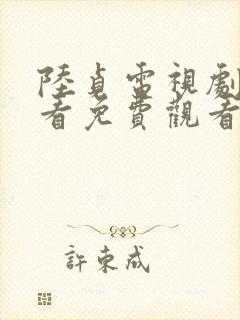 陸貞電視劇
看免費觀看
許東成